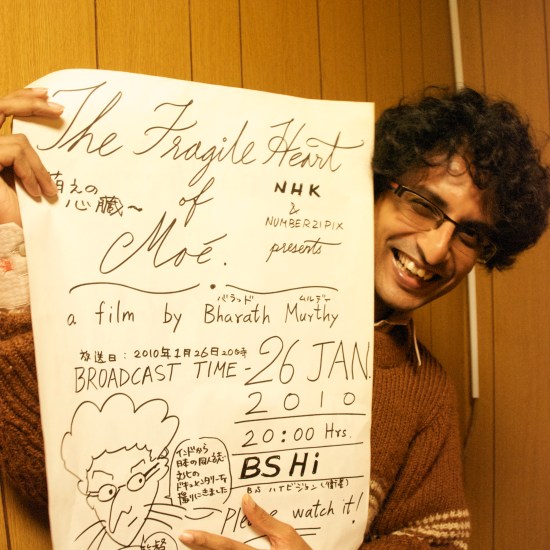 The Fragile Heart
萌えの
心臓~
of
Moé.
NHK
&
NUMBER21PIX
presents
バラッド ムルティー
a film by Bharath Murthy
放送日:2010年1月26日20時
BROADCAST TIME - 26 JAN.
2010
20:00 Hrs.
BS Hi
BSハイビジョン(衛星)
インドから
日本の同人誌
文化の
ドキュメンタリーを
撮りにきました
please watch it!
監督